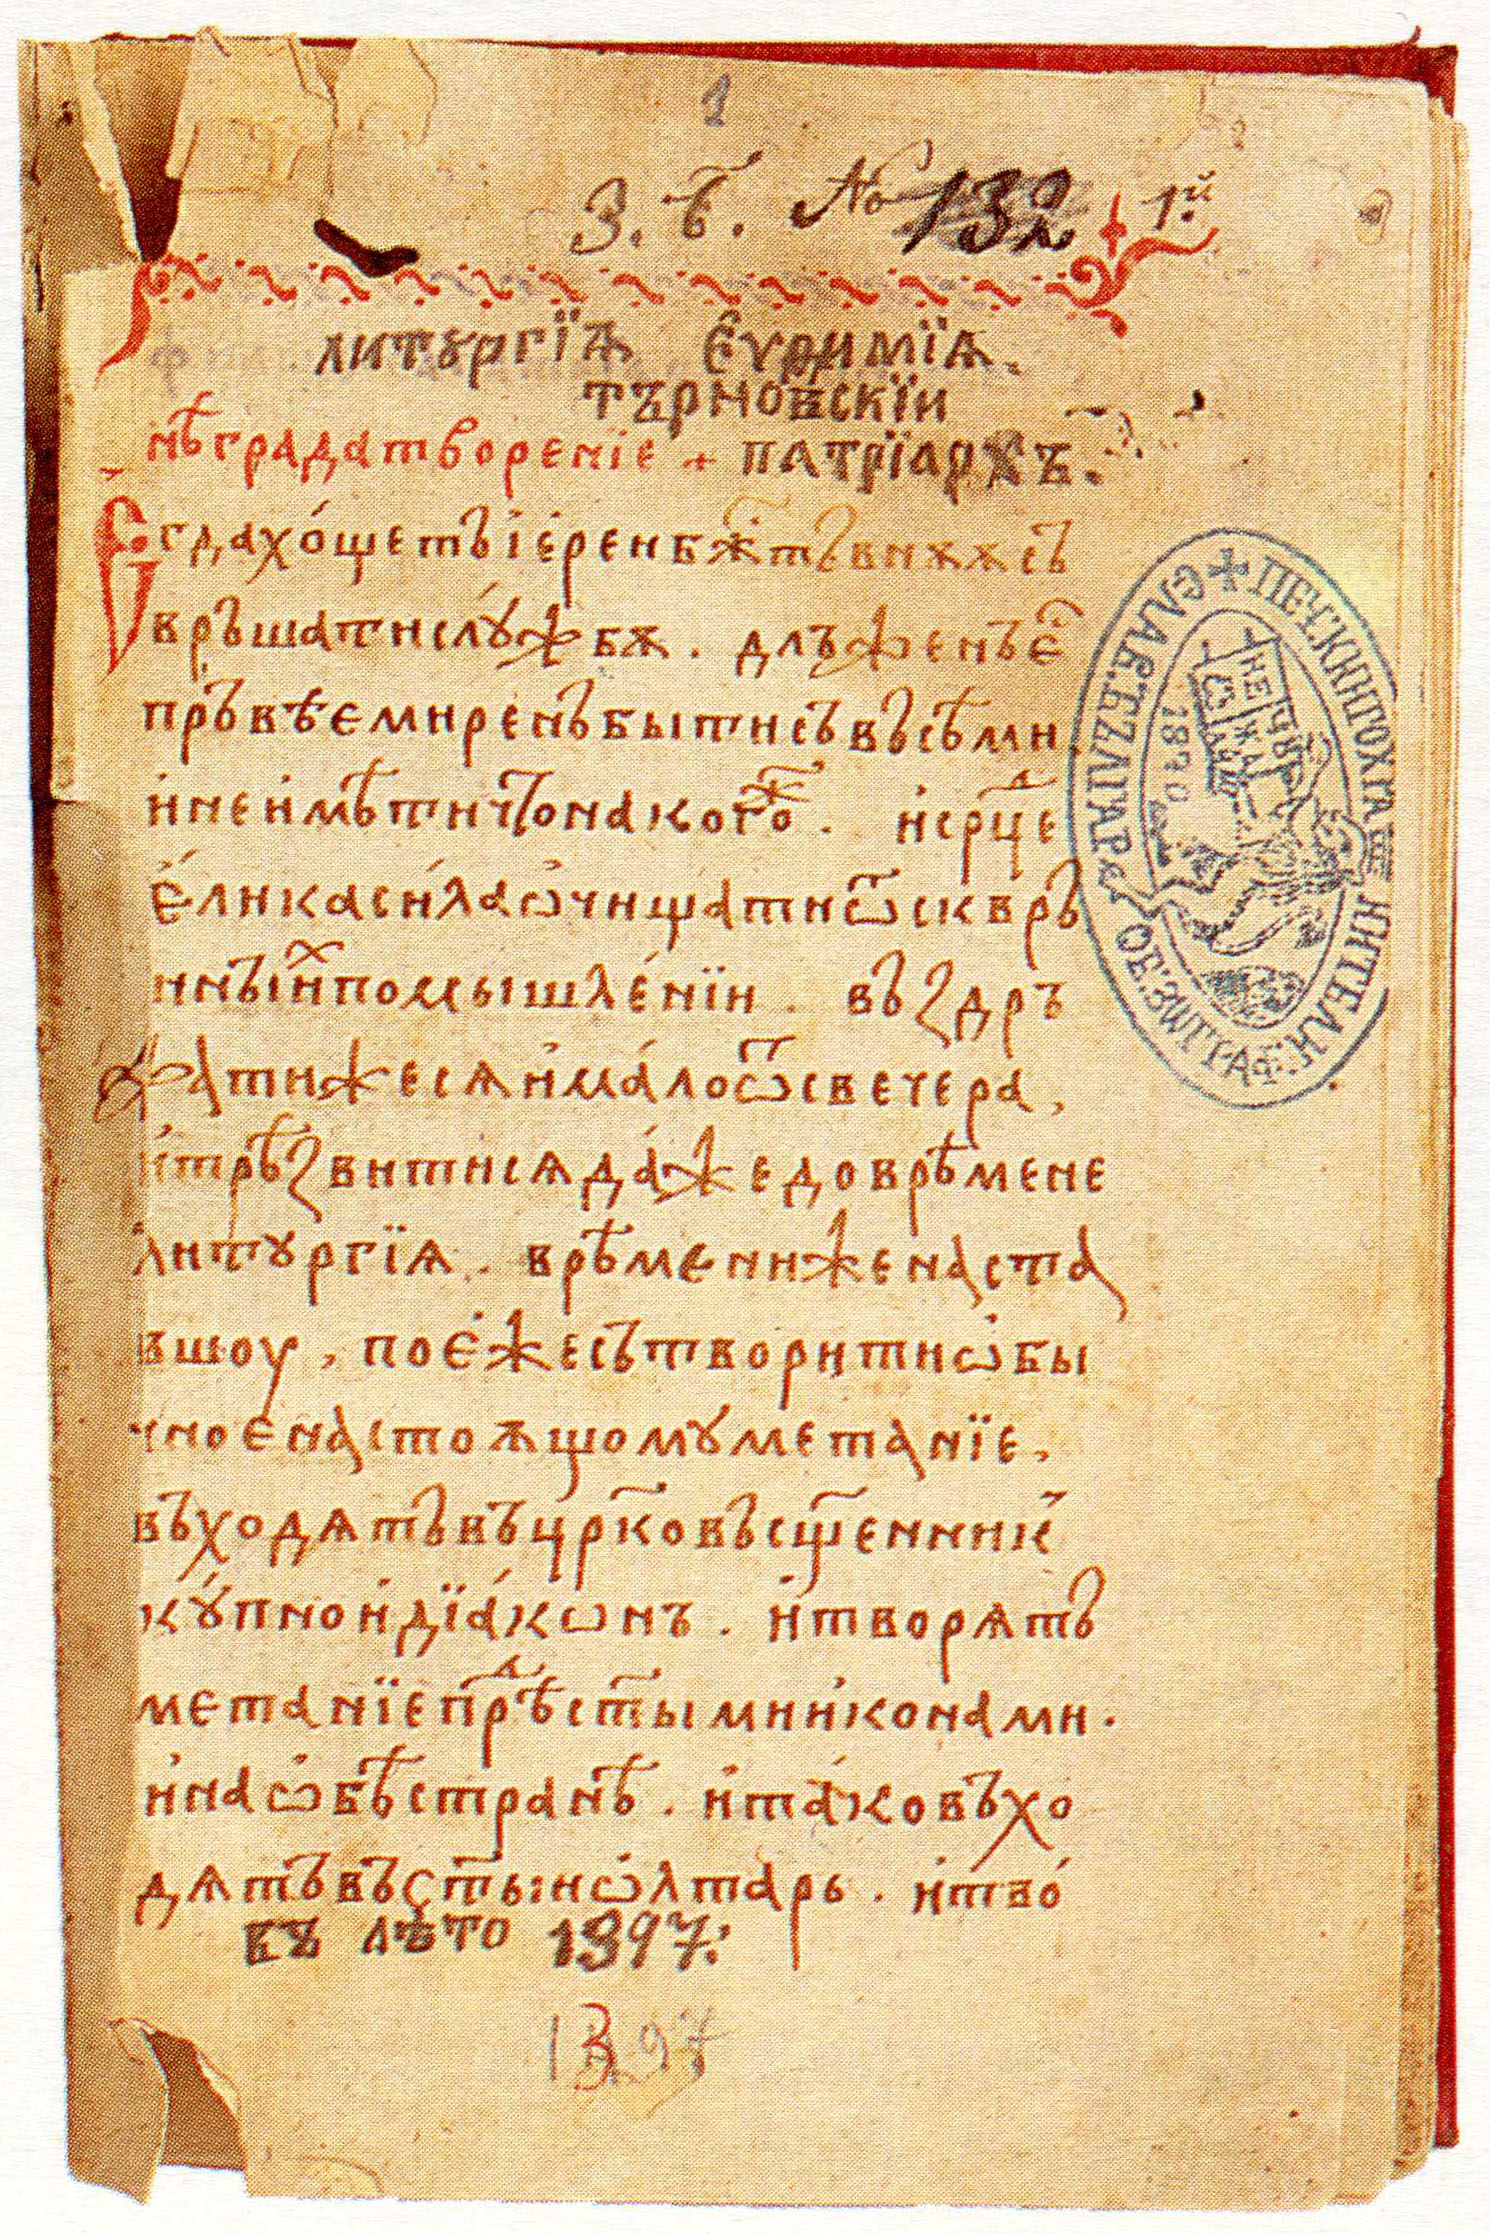 1
З. Б. № 132 1й
ЛИТꙊРГЇѦ ЄѴѲИМЇѦ.
ТЪРНОВСКЇИ
нѣградатворенїе + ПАТРЇАРХЪ.
Єгдахо́щетъі҆ере́нбж҃твнѫѫсъ
връшатислꙋ́жбѫ . длъженъє҆
пръвѣємиренъбытисъвъсѣми
и҆неи҆мѣтичтонакогоⷤ . и҆срⷣце
є҆ликаси́лаѡ҆чищатиѿсквръ
нныи҆ⷯпомышле́нїи . въздръ
жатижесѧи҆ма́лоѿсвечера ,
и҆трѣзвитисѧда́жедоврѣмене
литꙋргїѧ . врѣмениженаста
вшоу , поє҆́жесътворитиѡ҆бы
чноєнастоѧщомꙋметанїе ,
въходѧтъвъцр҃ковьсщ҃енник
кꙋ́пнои҆дїа́кѡнъ . и҆творѧтъ
метанїепрѣⷣст҃ымии҆конами .
и҆наѡ҆бѣстранѣ . и҆та́ковъхо
дѧтъвъст҃ыиѡ҆лтарь . и҆тво́
ВЪ ЛѢТО 1397.
1397
ПЕЧ. КНИГОХРАНИТЕЛН
СЛАВ. БЪЛГАР. ОБ. ЗѠГРАФ.
1870